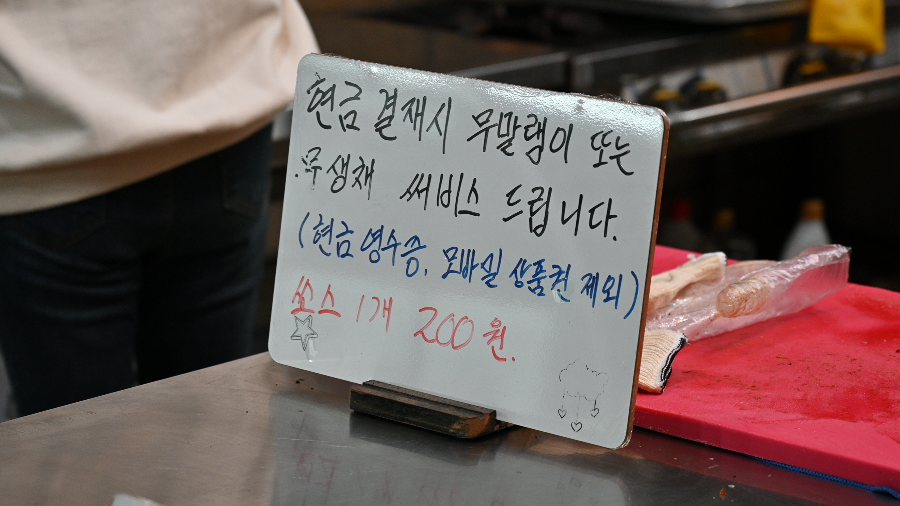 현금 결재시 무말랭이 또는
무생채 써비스 드립니다.
(현금 영수증, 모바실 상품권 제외)
쏘스 1개 200원.